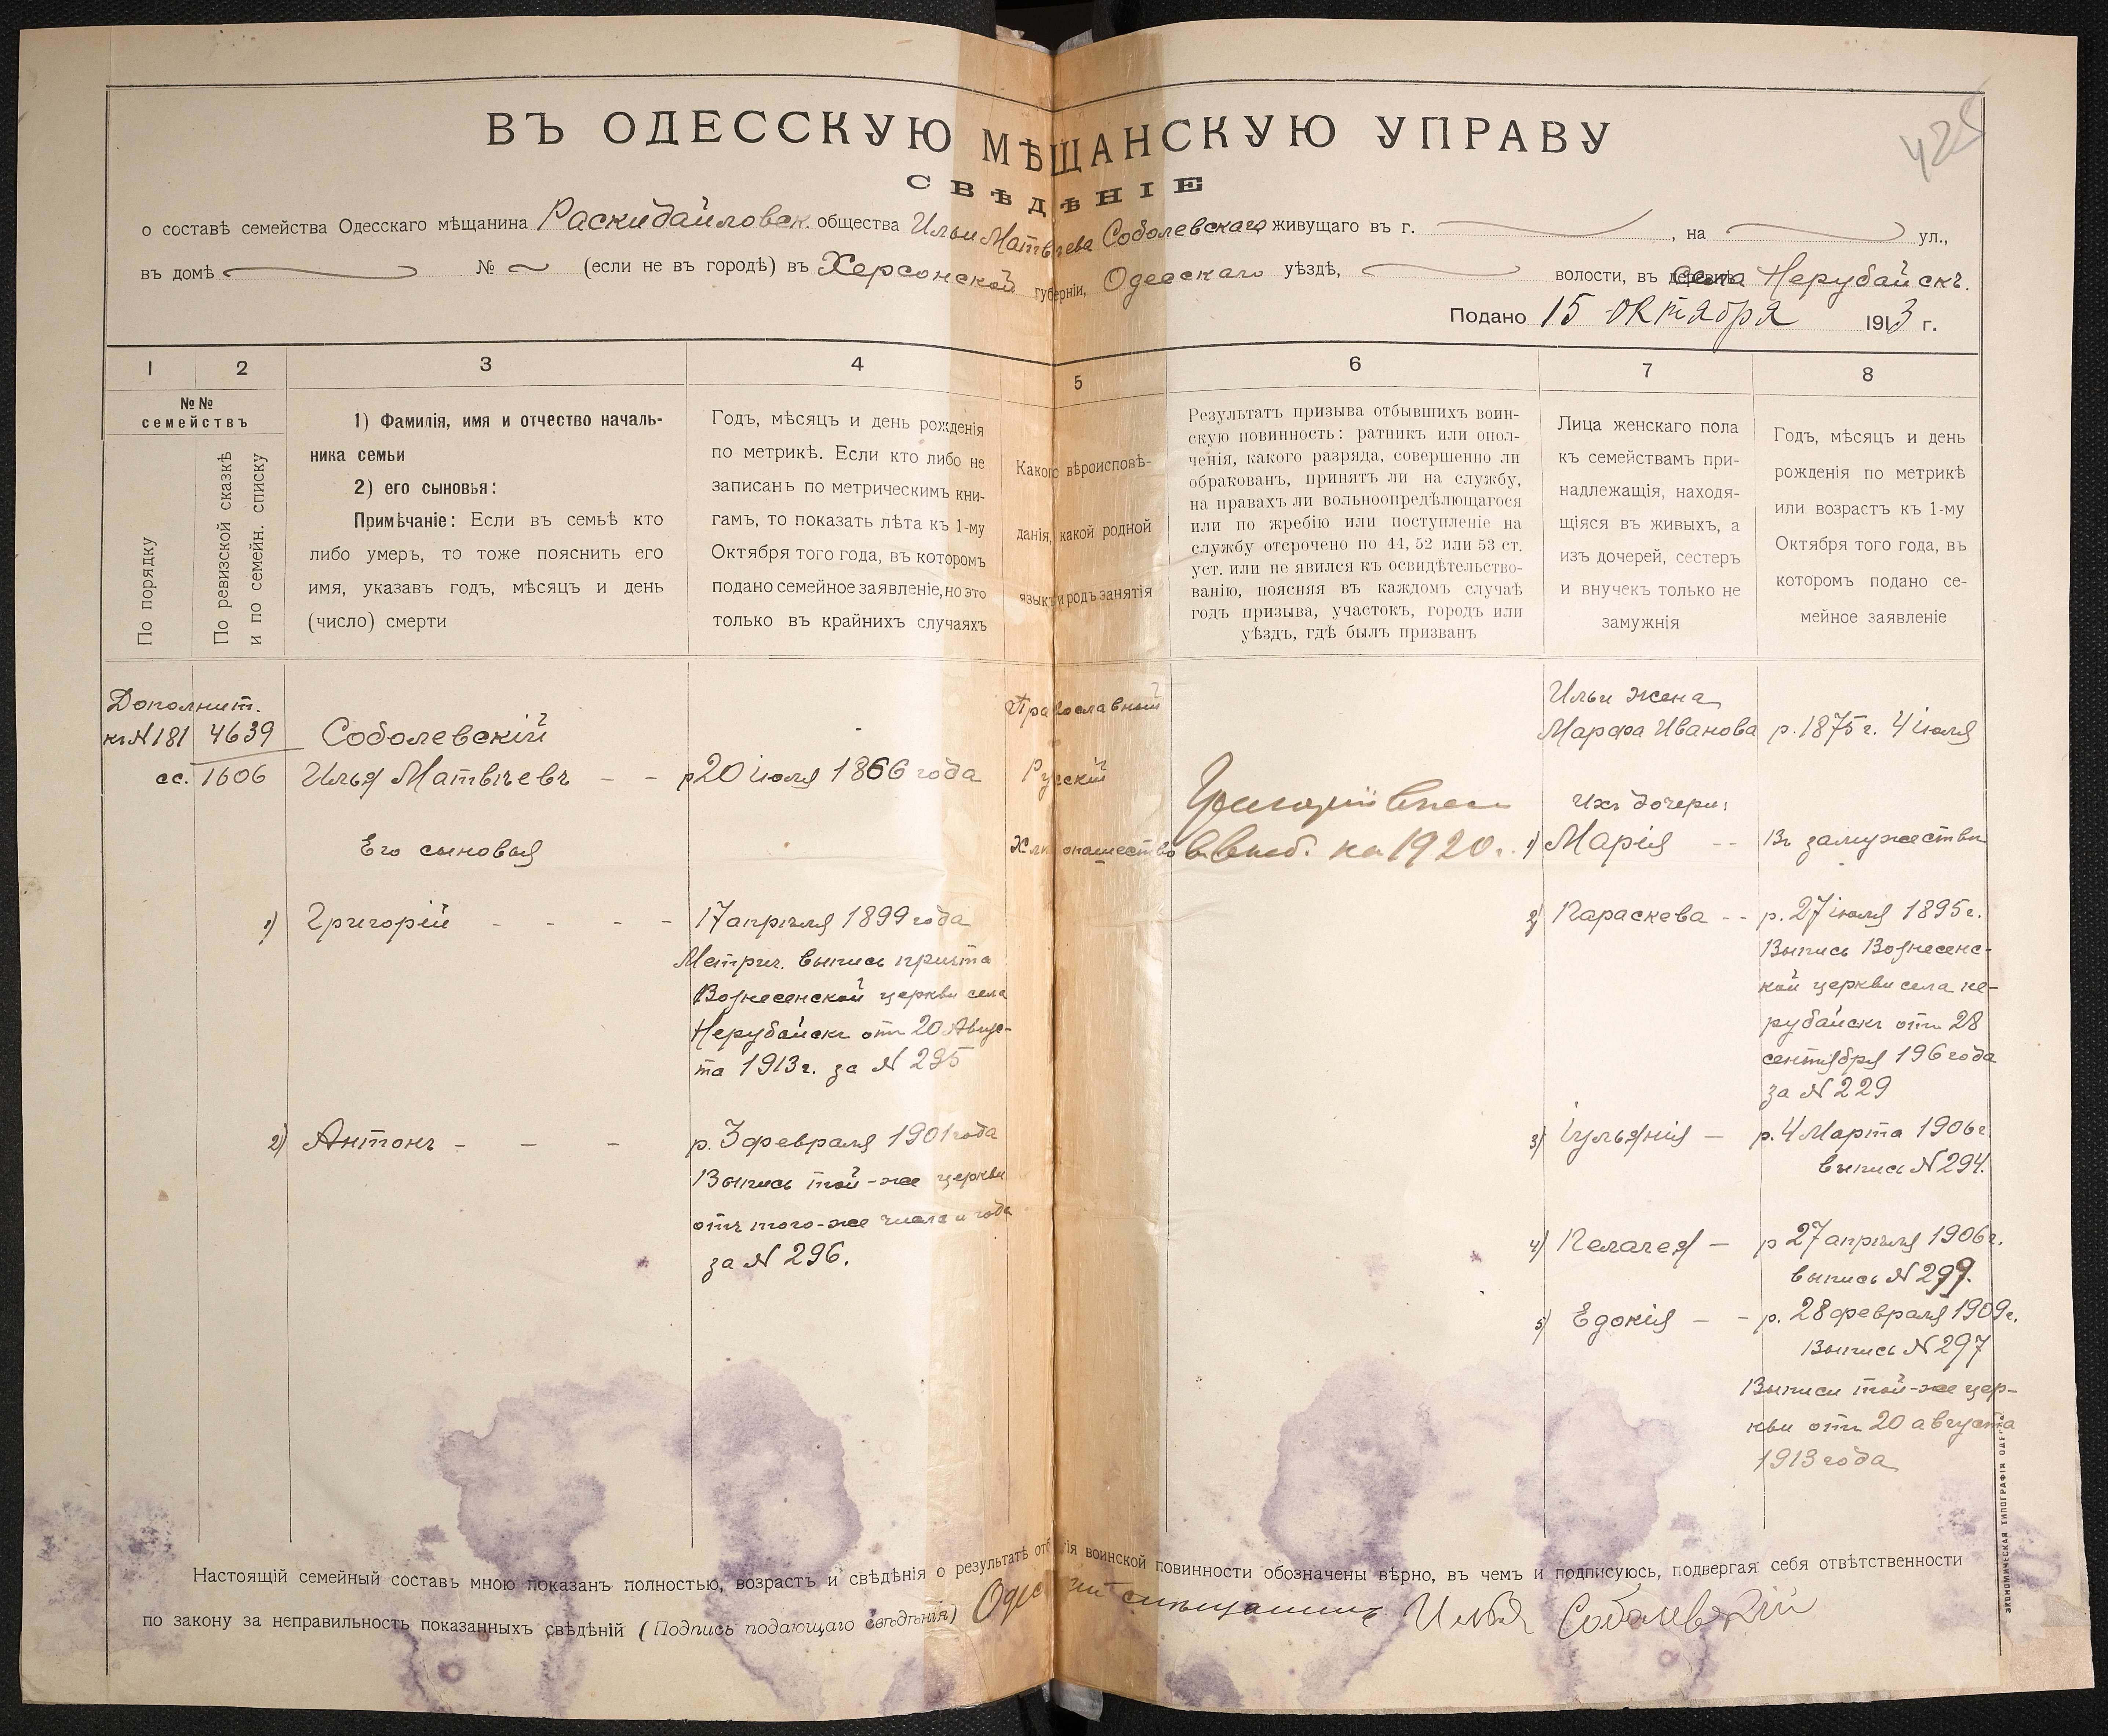 425
ВЪ ОДЕССКУЮ МѢЩАНСКУЮ УПРАВУ
СВѢДѢНІЕ
о составѣ семейства Одесскаго мѣщанина Раскидайловск. общества Ильи Матвѣева Соболевскаго живущаго въ г. , на ул.,
въ домѣ № (если не въ городѣ) въ Херсонской губерніи, Одесскаго уѣздѣ, волости, въ села Нерубайскъ.
Подано 15 октября 1913 г.
1 2 3 4 5 6 7 8
№№ семействъ
По порядку
По ревизской сказкѣ
и по семейн. списку
1) Фамилія, имя и отчество началь-
ника семьи
2) его сыновья:
Примѣчаніе: Если въ семьѣ кто
либо умеръ, то тоже пояснить его
имя, указавъ годъ, мѣсяцъ и день
(число) смерти
Годъ, мѣсяцъ и день рожденія
по метрикѣ. Если кто либо не
записанъ по метрическимъ кни-
гамъ, то показать лѣта къ 1-му
Октября того года, въ которомъ
подано семейное заявленіе, но это
только въ крайнихъ случаяхъ
Какого вѣроисповѣ-
данія, какой родной
языкъ и родъ занятія
Результатъ призыва отбывшихъ воин-
скую повинность: ратникъ или опол-
ченія, какого разряда, совершенно ли
обракованъ, принятъ ли на службу,
на правахъ ли вольноопредѣляющагося
или по жребію или поступленіе на
службу отсрочено по 44, 52 или 53 ст.
уст. или не явился къ освидѣтельство-
ванію, поясняя въ каждомъ случаѣ
годъ призыва, участокъ, городъ или
уѣздъ, гдѣ былъ призванъ
Лица женскаго пола
къ семействамъ при-
надлежащія, находя-
щіяся въ живыхъ, а
изъ дочерей, сестеръ
и внучекъ только не
замужнія
Годъ, мѣсяцъ и день
рожденія по метрикѣ
или возрастъ къ 1-му
Октября того года, въ
которомъ подано се-
мейное заявленіе
Дополнит.
къ N 181 4639
сс. 1606
Соболевскій
Илья Матвѣевъ - - р 20 іюля 1866 года
Его сыновья
1) Григорій - - - - 17 апрѣля 1899 года
Метрич. выпись причта
Вознесенской церкви села
Нерубайскъ отъ 20 Авгус-
та 1913 г. за N 295
2) Антонъ - - - р. 3 февраля 1901 года
Выпись той-же церкви
отъ того-же числа и года
за N 296.
Православный
Русскій
Хлѣбопашество
Григорій внес.
на 1920 г.
Ильи жена
Марфа Иванова р. 1875 г. 4 іюля
Ихъ дочери:
1) Марія - - Въ замужествѣ
2) Параскева - - р. 27 іюля 1895 г.
Выпись Вознесенс-
кой церкви села Не-
рубайскъ отъ 28
сентября 196 года
за N 229
3) Іульянія - р. 4 Марта 1906 г.
выпись N 294.
4) Пелагея - р 27 апрѣля 1906 г.
выпись N 299.
5) Едокія - - р. 28 февраля 1909 г.
Выпись N 297
Выписи той-же цер-
кви отъ 20 августа
1913 года
Настоящій семейный составъ мною показанъ полностью, возрастъ и свѣдѣнія о результатѣ отбытія воинской повинности обозначены вѣрно, въ чемъ и подписуюсь, подвергая себя отвѣтственности
по закону за неправильность показанныхъ свѣдѣній (Подпись подающаго свѣдѣнія) Илья Соболевскій
ЭКОНОМИЧЕСКАЯ ТИПОГРАФІЯ